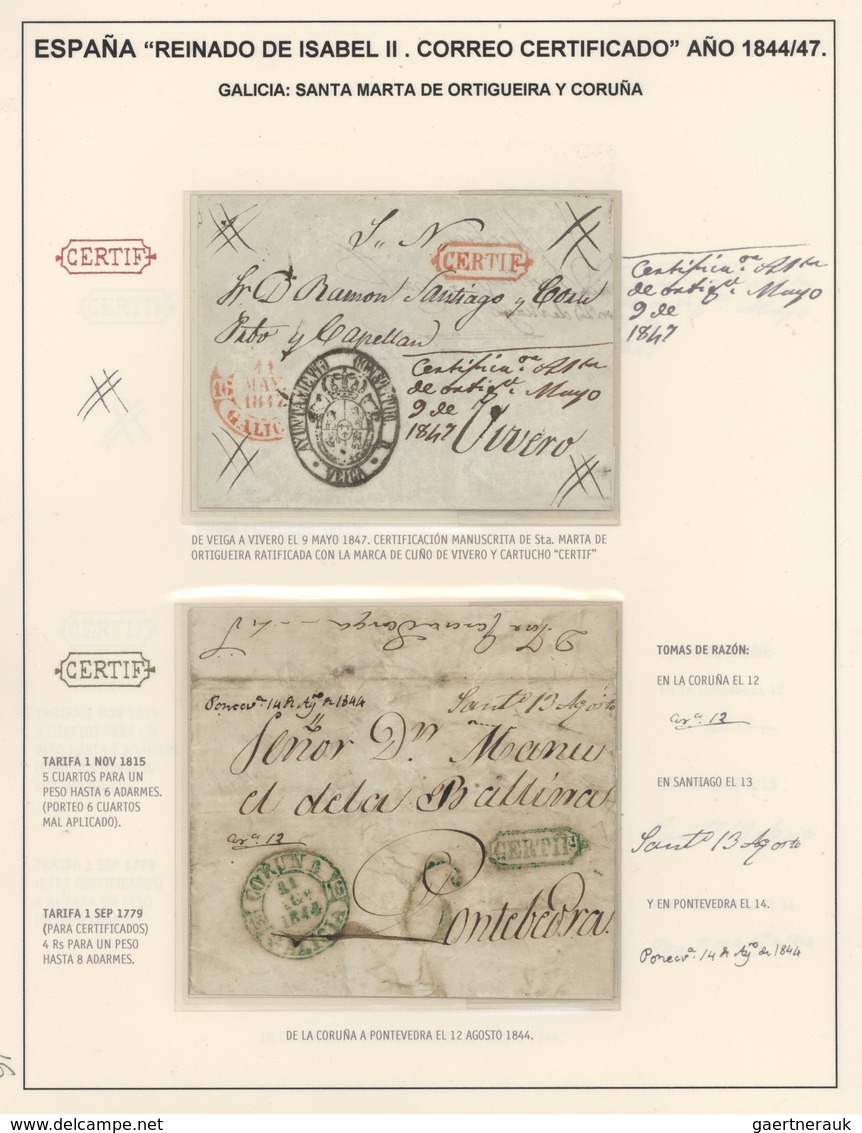 ESPAÑA “REINADO DE ISABEL II . CORREO CERTIFICADO” AÑO 1844/47.
GALICIA: SANTA MARTA DE ORTIGUEIRA Y CORUÑA
CERTIF
S. N.
CERTIF
Sr. D. Ramon Santiago y Cora
Pbro y Capellan
Certifica.on Sta
de ortigª. Mayo
9 de
1847
Vivero
16
11
MAY.
1847
GALIC
AYUNTAMIENTO CONSTITUC
VEIGA
Certifica.on Sta
de ortigª. Mayo
9 de
1847
DE VEIGA A VIVERO EL 9 MAYO 1847. CERTIFICACIÓN MANUSCRITA DE Sta. MARTA DE
ORTIGUEIRA RATIFICADA CON LA MARCA DE CUÑO DE VIVERO Y CARTUCHO “CERTIF”
CERTIF
TARIFA 1 NOV 1815
5 CUARTOS PARA UN
PESO HASTA 6 ADARMES.
(PORTEO 6 CUARTOS
MAL APLICADO).
TARIFA 1 SEP 1779
(PARA CERTIFICADOS)
4 Rs PARA UN PESO
HASTA 8 ADARMES.
14 de Agto de 1844
Santo 13 Agosto
Señor Dn. Manu
el de la Ballina
Cora. 12
CERTIF
CORUÑA
11
1844
16
GALICIA
6
Pontebedra.
TOMAS DE RAZÓN:
EN LA CORUÑA EL 12
Cora. 12
EN SANTIAGO EL 13
Santo 13 Agosto
Y EN PONTEVEDRA EL 14.
14 de Agto de 1844
DE LA CORUÑA A PONTEVEDRA EL 12 AGOSTO 1844.
16
gaertnerauk